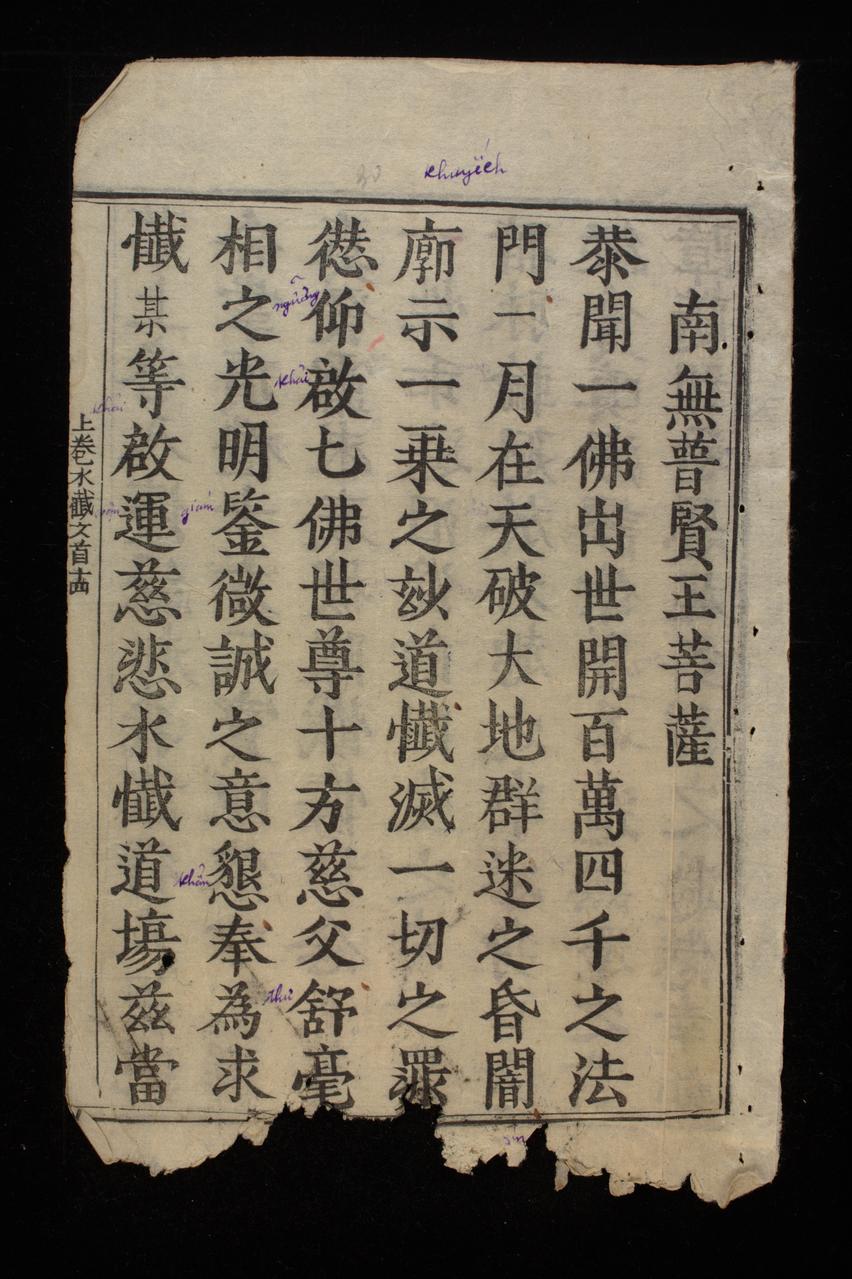 南無普賢王菩薩
恭聞一佛出世開百萬四千之法
門一月在天破大地群迷之昏闇
廓示一乗之玅道懺滅一切之罪
愆仰啟七佛世尊十方慈父舒毫
相之光明鑒微誠之意懇奉為求
懺某等啟運慈悲水懺道塲茲當
上卷水懺文首
khuyếch
ngưỡng
khải
thư
giám
khẩn
khải